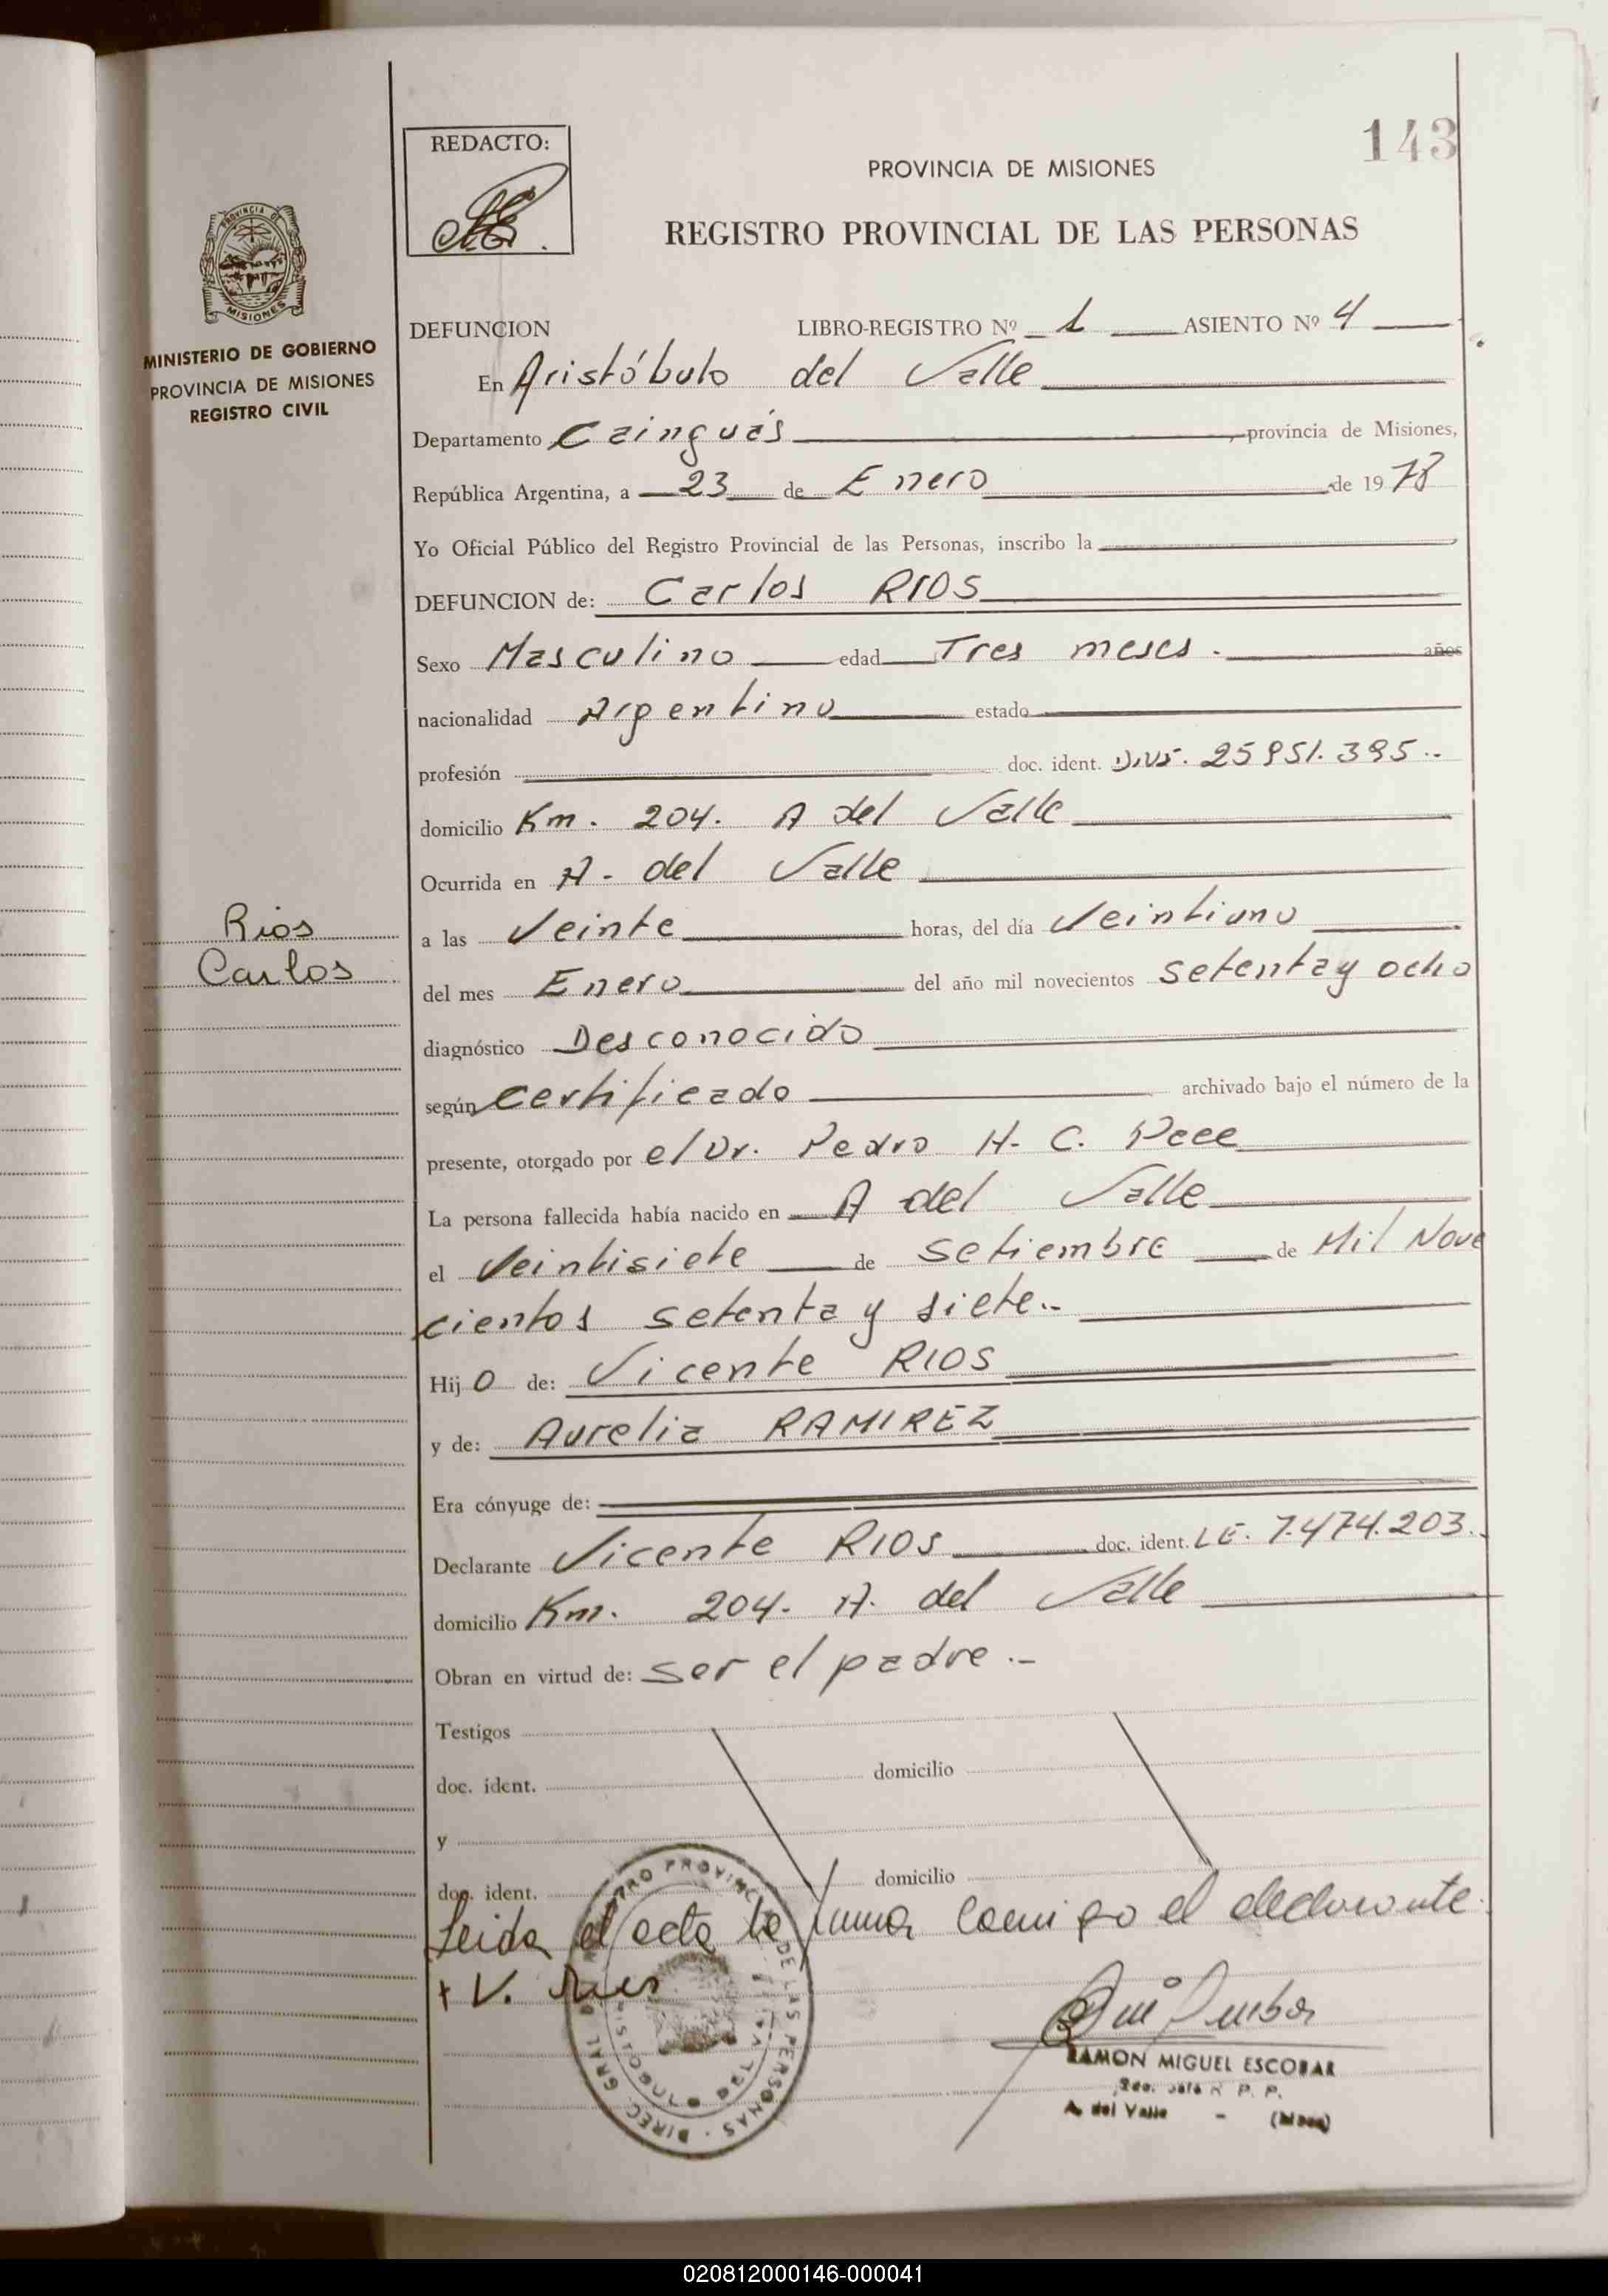 143
REDACTO:
PROVINCIA DE MISIONES
REGISTRO PROVINCIAL DE LAS PERSONAS
PROVINCIA DE
MISIONES
MINISTERIO DE GOBIERNO
PROVINCIA DE MISIONES
REGISTRO CIVIL
DEFUNCION LIBRO-REGISTRO Nº 1 ASIENTO Nº 4
En Aristóbulo del Valle
Departamento Cainguás provincia de Misiones,
República Argentina, a 23 de Enero de 1978
Yo Oficial Público del Registro Provincial de las Personas, inscribo la
DEFUNCION de: Carlos RIOS
Sexo Masculino edad Tres meses. años
nacionalidad Argentino estado
profesión doc. ident. 25951.395..
domicilio Km. 204. A del Valle
Ocurrida en A. del Valle
Rios
Carlos
a las Veinte horas, del día Veintiuno
del mes Enero del año mil novecientos setenta y ocho
diagnóstico Desconocido
según certificado archivado bajo el número de la
presente, otorgado por el Dr. Pedro H. C.
La persona fallecida había nacido en A del Valle
el Veintisiete de setiembre de Mil Nove
cientos setenta y siete..
Hijo de: Vicente RIOS
y de: Aurelia RAMIREZ
Era cónyuge de:
Declarante Vicente RIOS doc. ident. LE. 7.474.203.
domicilio Km. 204. A. del Valle
Obran en virtud de: ser el padre.-
Testigos
doc. ident. domicilio
y
doc. ident. domicilio
Leida el acta la firma conmigo el declarante.
+ V. Rios
REGISTRO PROVINCIAL DE LAS PERSONAS · DIREC. GRAL
ARISTOBULO DEL VALLE
RAMON MIGUEL ESCOBAR
R P. P.
A. del Valle - (Mnes)
020812000146-000041